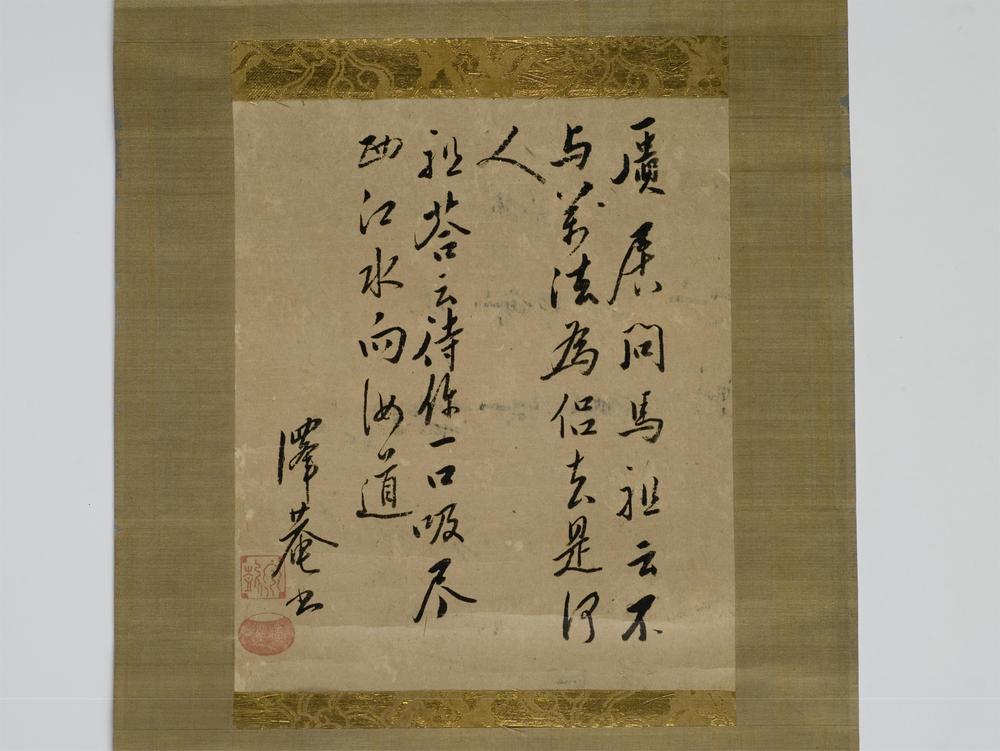 龐居問馬祖云不
与萬法為侶者是何
人
祖荅云待你一口吸尽
西江水向汝道
澤菴書